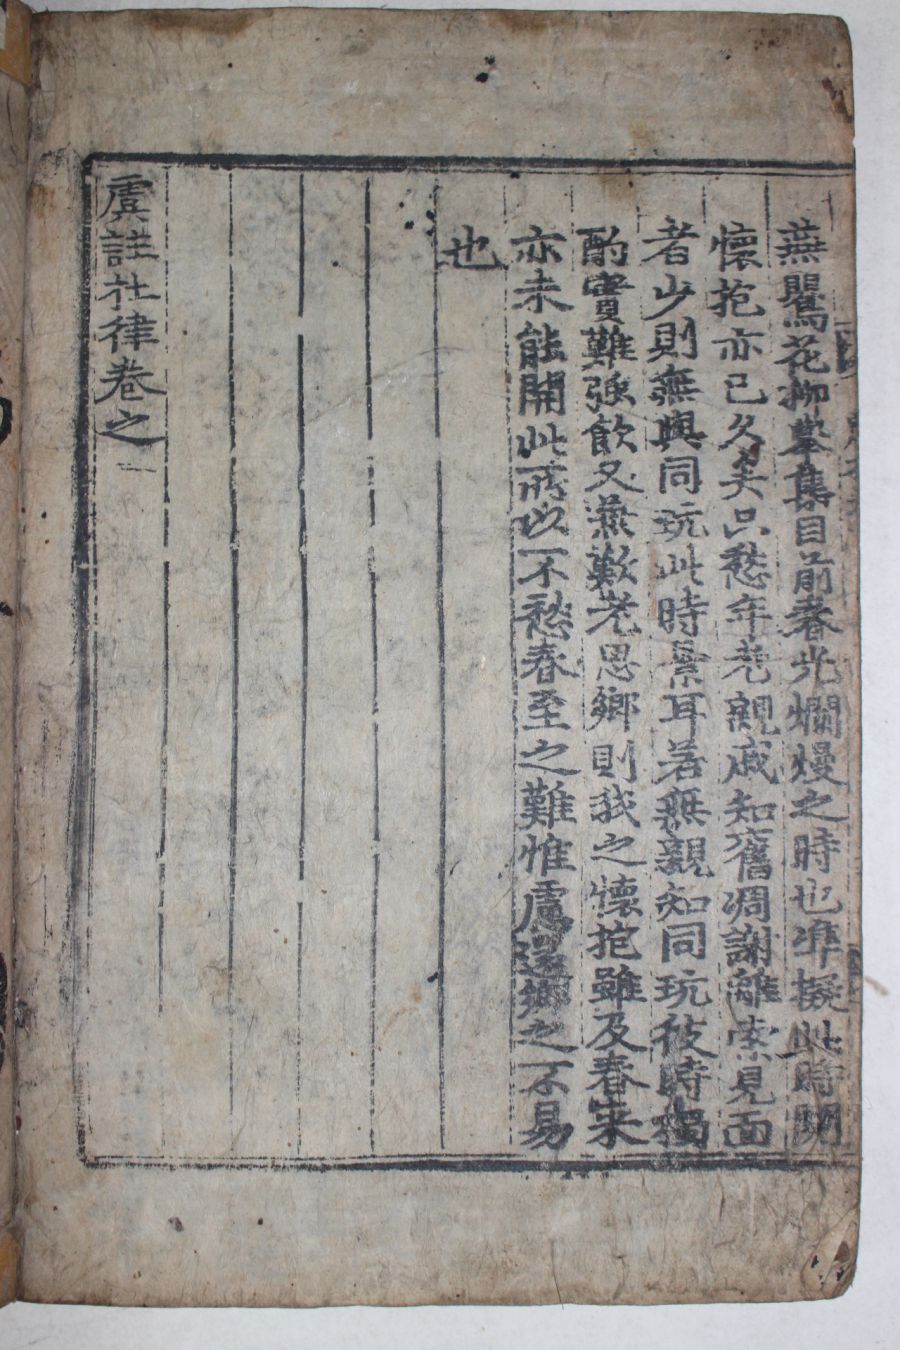 燕鸎花柳挙集目前春光爛熳之時也準擬此時開
懷抱亦已久矣只愁年老親戚知舊凋謝離索見面
者少則無與同玩此時景耳若無親知同玩彼時獨
酌實難強飲又兼歎老思鄉則我之懷抱雖及春来
亦未能開此所以不愁春至之難惟慮還鄉之不易
也
虞註杜律卷之